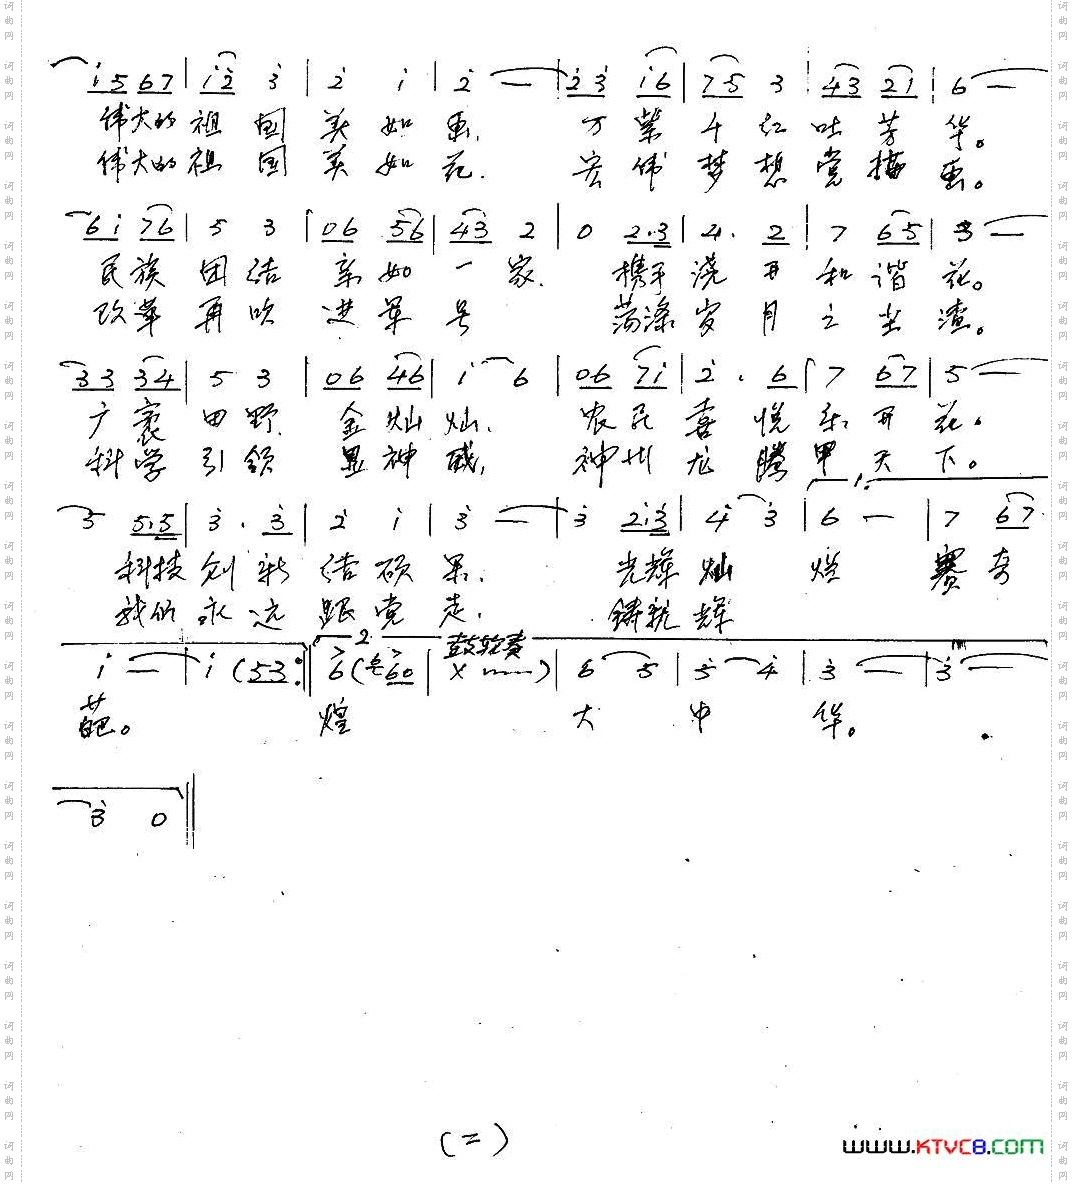 i 5 6 7 | i 2 3 | 2 i | 2 — | 2 3 i 6 | 7 5 3 | 4 3 2 1 | 6 —
伟大的祖国美如画. 万紫千红吐芳华。
伟大的祖国美如花. 宏伟梦想党描画。
6 i 7 6 | 5 3 | 0 6 5 6 | 4 3 2 | 0 2 . 3 | 4 . 2 | 7 6 5 | 3 —
民族团结亲如一家. 携手浇开和谐花。
改革再吹进军号 荡涤岁月之尘渣。
3 3 3 4 | 5 3 | 0 6 4 6 | i 6 | 0 6 7 i | 2 . 6 | 7 6 7 | 5 —
广袤田野金灿灿. 农民喜悦乐开花。
科学引领显神威, 神州龙腾甲天下。
1.
5 5 . 5 | 3 . 3 | 2 i | 3 — | 3 2 . 3 | 4 3 | 6 — | 7 6 7
科技创新结硕果. 光辉灿烂赛奇
我们永远跟党走. 铸就辉
2. 鼓独奏
i — | i ( 5 3 :| 6 ( 6 0 | X ) | 6 5 | 5 4 | 3 — | 3 —
葩。 煌 大中华。
3 0 ‖
(二)
www.KTVC8.com
词曲网